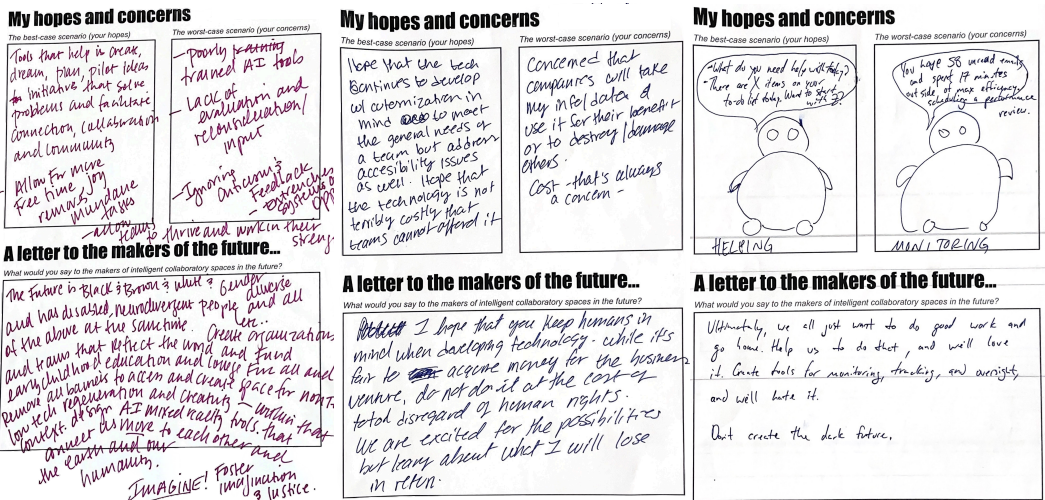 My hopes and concerns
The best-case scenario (your hopes)
Tools that help us create,
dream, plan, pilot ideas
initiatives that solve
problems and facilitate
connection, collaboration
and community
Allow for more
free time, joy
remove
mundane
tasks
- allow
teams
to thrive and work in their
streng
The worst-case scenario (your concerns)
- Poorly
trained AI tools
- Lack of
evaluation and
reconsideration/
input
- Ignoring
Criticism &
Feedback
- entrenches
systems of
opp
A letter to the makers of the future...
What would you say to the makers of intelligent collaboratory spaces in the future?
The Future is Black & Brown & white & Gender
diverse
and has disabled, neurodivergent people and all
of the above at the sametime. etc..
Create organizations
and teams that reflect the world and Fund
early childhood education and college For all and
Remove all barriers to access and create space for non+
low tech regeneration and creativity - within that
context. design AI mixed reality tools that
connect us more to each other and
the earth and our
humanity.
IMAGINE! Foster
imagination
& justice.
My hopes and concerns
The best-case scenario (your hopes)
Hope that the tech
continues to develop
w/ customization in
mind to meet
the general needs of
a team but address
accesibility issues
as well. Hope that
the technology is not
terribly costly that
teams cannot afford it
The worst-case scenario (your concerns)
Concerned that
companies will take
my info/data &
use it for their benefit
or to destroy/damage
others.
Cost - that's always
a concern -
A letter to the makers of the future...
What would you say to the makers of intelligent collaboratory spaces in the future?
I hope that you keep humans in
mind when developing technology. While it's
fair to acquire money for the business
venture, do not do it at the cost of
total disregard of human rights.
We are excited for the possibilities
but leary about what I will lose
in return.
My hopes and concerns
The best-case scenario (your hopes)
- What do you need help with today?
- There are X items on your
to-do list today. Want to start
with
HELPING
The worst-case scenario (your concerns)
You have 58 unread emails
and spent 17 minutes
outside of max efficiency,
scheduling a performance
review.
MONITORING
A letter to the makers of the future...
What would you say to the makers of intelligent collaboratory spaces in the future?
Ultimately, we all just want to do good work and
go home. Help us to do that, and we'll love
it. Create tools for monitoring, tracking, and oversight,
and we'll hate it.
Don't create the dark future.